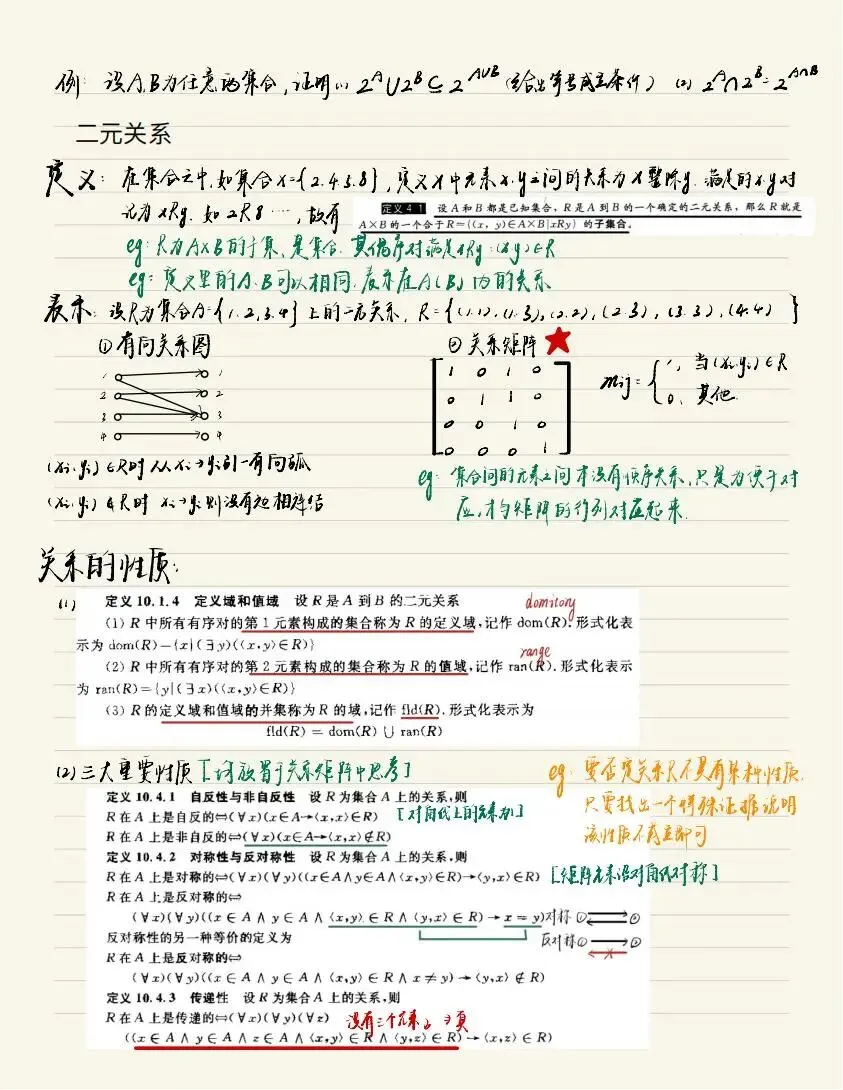 例: 设A,B为任意两集合,证明(1) 2^A∪2^B⊆2^{A∪B} (给出等号成立条件) (2) 2^A∩2^B=2^{A∩B}
二元关系
定义: 在集合之中,如集合X={2.4.5.8},定义X中元素x.y之间的关系为x整除y.满足的x.y对
记为xRy.如2R8…,故有
定义4.1 设A和B都是已知集合,R是A到B的一个确定的二元关系,那么R就是
A×B的一个合于R={(x,y)∈A×B|xRy}的子集合。
eg: R为A×B的子集,是集合.其偶序对满足xRy:(x,y)∈R
eg: 定义里的A.B可以相同.表示在A(B)内的关系
表示: 设R为集合A={1.2.3.4}上的二元关系, R={(1.1),(1.3),(2.2),(2.3),(3.3),(4.4)}
①有向关系图 ②关系矩阵
1 1
2 2
3 3
4 4
1 0 1 0
0 1 1 0
0 0 1 0
0 0 0 1
mij={1, 当(xi,yj)∈R
0, 其他.
(xi,yj)∈R时从xi→yj引一有向弧
(xi,yj)∉R时 xi→yj则没有
eg: 集合间的元素之间本没有顺序关系,只是为便于对
应,才与矩阵的行列对应起来.
关系的性质:
(1)
定义 10.1.4 定义域和值域 设R是A到B的二元关系
domitory
(1) R中所有有序对的第1元素构成的集合称为R的定义域,记作dom(R).形式化表
示为dom(R)={x|(∃y)(⟨x,y⟩∈R)}
range
(2) R中所有有序对的第2元素构成的集合称为R的值域,记作ran(R).形式化表示
为ran(R)={y|(∃x)(⟨x,y⟩∈R)}
(3) R的定义域和值域的并集称为R的域,记作fld(R).形式化表示为
fld(R)=dom(R)∪ran(R)
(2)三大重要性质[请放置于关系矩阵中思考]
eg: 要否定关系R不具有某种性质.
只要找出一个特殊证据说明
该性质不成立即可
定义 10.4.1 自反性与非自反性 设R为集合A上的关系,则
R在A上是自反的⇔(∀x)(x∈A→⟨x,x⟩∈R) [对角线上的元素为1]
R在A上是非自反的⇔(∀x)(x∈A→⟨x,x⟩∉R)
定义 10.4.2 对称性与反对称性 设R为集合A上的关系,则
R在A上是对称的⇔(∀x)(∀y)((x∈A∧y∈A∧⟨x,y⟩∈R)→⟨y,x⟩∈R) [矩阵元素沿对角线对称]
R在A上是反对称的⇔
(∀x)(∀y)((x∈A∧y∈A∧⟨x,y⟩∈R∧⟨y,x⟩∈R)→x=y) 对称
反对称性的另一种等价的定义为 反对称
R在A上是反对称的⇔
(∀x)(∀y)((x∈A∧y∈A∧⟨x,y⟩∈R∧x≠y)→⟨y,x⟩∉R)
定义 10.4.3 传递性 设R为集合A上的关系,则
R在A上是传递的⇔(∀x)(∀y)(∀z) 没有三个元素
((x∈A∧y∈A∧z∈A∧⟨x,y⟩∈R∧⟨y,z⟩∈R)→⟨x,z⟩∈R)